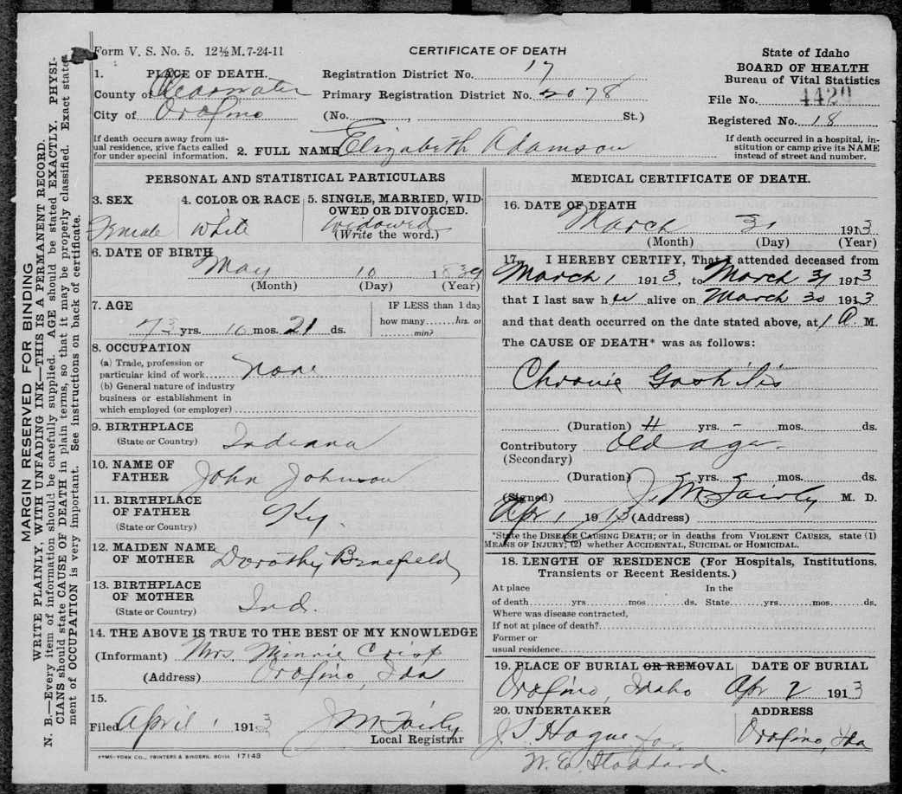 Form V. S. No. 5. 12½ M. 7-24-11
CERTIFICATE OF DEATH
State of Idaho
BOARD OF HEALTH
Bureau of Vital Statistics
File No. 4429
Registered No. 18
If death occurred in a hospital, in-
stitution or camp give its NAME
instead of street and number.
1. PLACE OF DEATH.
County of Clearwater
City of Orofino
If death occurs away from us-
ual residence, give facts called
for under special information.
Registration District No. 17
Primary Registration District No. 2078
(No. , St.)
2. FULL NAME Elizabeth Adamson
MARGIN RESERVED FOR BINDING
WRITE PLAINLY, WITH UNFADING INK—THIS IS A PERMANENT RECORD.
N. B.—Every item of information should be carefully supplied. AGE should be stated EXACTLY. PHYSI-
CIANS should state CAUSE OF DEATH in plain terms, so that it may be properly classified. Exact state-
ment of OCCUPATION is very important. See instructions on back of certificate.
PERSONAL AND STATISTICAL PARTICULARS
3. SEX
Female
4. COLOR OR RACE
White
5. SINGLE, MARRIED, WID-
OWED OR DIVORCED.
Widowed
(Write the word.)
6. DATE OF BIRTH
May 10 1839
(Month) (Day) (Year)
7. AGE
73 yrs. 10 mos. 21 ds.
IF LESS than 1 day
how many hrs. or
min?
8. OCCUPATION
(a) Trade, profession or
particular kind of work None
(b) General nature of industry
business or establishment in
which employed (or employer)
9. BIRTHPLACE
(State or Country) Indiana
10. NAME OF
FATHER John Johnson
11. BIRTHPLACE
OF FATHER Ky.
(State or Country)
12. MAIDEN NAME
OF MOTHER Dorothy
13. BIRTHPLACE
OF MOTHER Ind.
(State or Country)
14. THE ABOVE IS TRUE TO THE BEST OF MY KNOWLEDGE
(Informant) Mrs. Minnie Crisp
(Address) Orofino, Ida
15.
Filed April 1 1913 J M Fairly
Local Registrar
SYMS-YORK CO., PRINTERS & BINDERS, BOISE 17143
MEDICAL CERTIFICATE OF DEATH.
16. DATE OF DEATH
March 31 1913
(Month) (Day) (Year)
17. I HEREBY CERTIFY, That I attended deceased from
March 1 1913, to March 31 1913
that I last saw her alive on March 30 1913
and that death occurred on the date stated above, at 1 A. M.
The CAUSE OF DEATH* was as follows:
Chronic
(Duration) yrs. mos. ds.
Contributory Old age
(Secondary)
(Duration) yrs. mos. ds.
(Signed) J. M. Fairly M. D.
Apr 1 1913 (Address)
*State the DISEASE CAUSING DEATH; or in deaths from VIOLENT CAUSES, state (1)
MEANS OF INJURY; (2) whether ACCIDENTAL, SUICIDAL OR HOMICIDAL.
18. LENGTH OF RESIDENCE (For Hospitals, Institutions.
Transients or Recent Residents.)
At place In the
of death yrs. mos. ds. State yrs. mos. ds.
Where was disease contracted,
If not at place of death?
Former or
usual residence
19. PLACE OF BURIAL OR REMOVAL DATE OF BURIAL
Orofino, Idaho Apr 2 1913
20. UNDERTAKER ADDRESS
J S Hogue for Orofino, Ida
W. E. Stoddard.